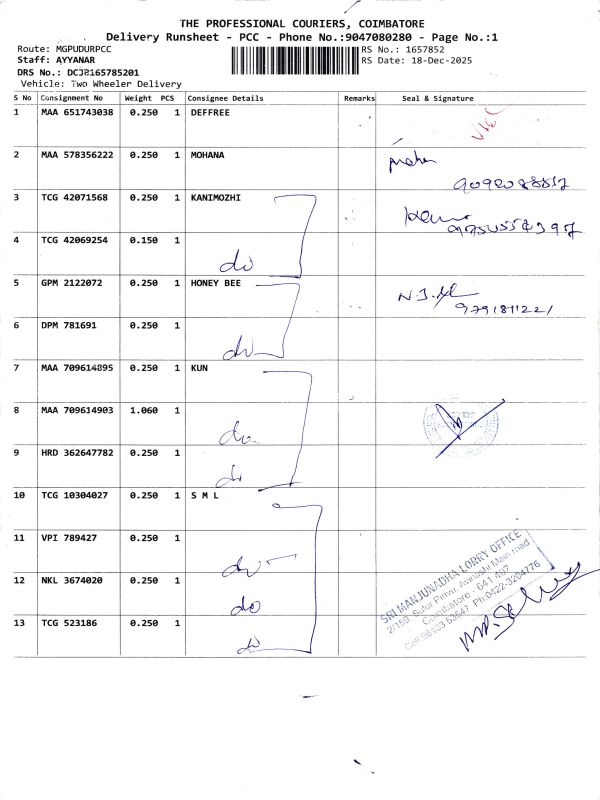 THE PROFESSIONAL COURIERS, COIMBATORE
Delivery Runsheet - PCC - Phone No.:9047080280 - Page No.:1
Route: MGPUDURPCC RS No.: 1657852
Staff: AYYANAR RS Date: 18-Dec-2025
DRS No.: DCJB165785201
Vehicle: Two Wheeler Delivery
S No Consignment No Weight PCS Consignee Details Remarks Seal & Signature
1 MAA 651743038 0.250 1 DEFFREE
2 MAA 578356222 0.250 1 MOHANA
3 TCG 42071568 0.250 1 KANIMOZHI
4 TCG 42069254 0.150 1 do
5 GPM 2122072 0.250 1 HONEY BEE
9791811221
6 DPM 781691 0.250 1 do
7 MAA 709614895 0.250 1 KUN
8 MAA 709614903 1.060 1 do
9 HRD 362647782 0.250 1 do
10 TCG 10304027 0.250 1 S M L
11 VPI 789427 0.250 1 do
12 NKL 3674020 0.250 1 do
13 TCG 523186 0.250 1 do
SRI MANJUNADHA LORRY OFFICE
2/159, Sulur Pirivu, Avinashi Main road
Coimbatore - 641 407
Ph:0422-3204776